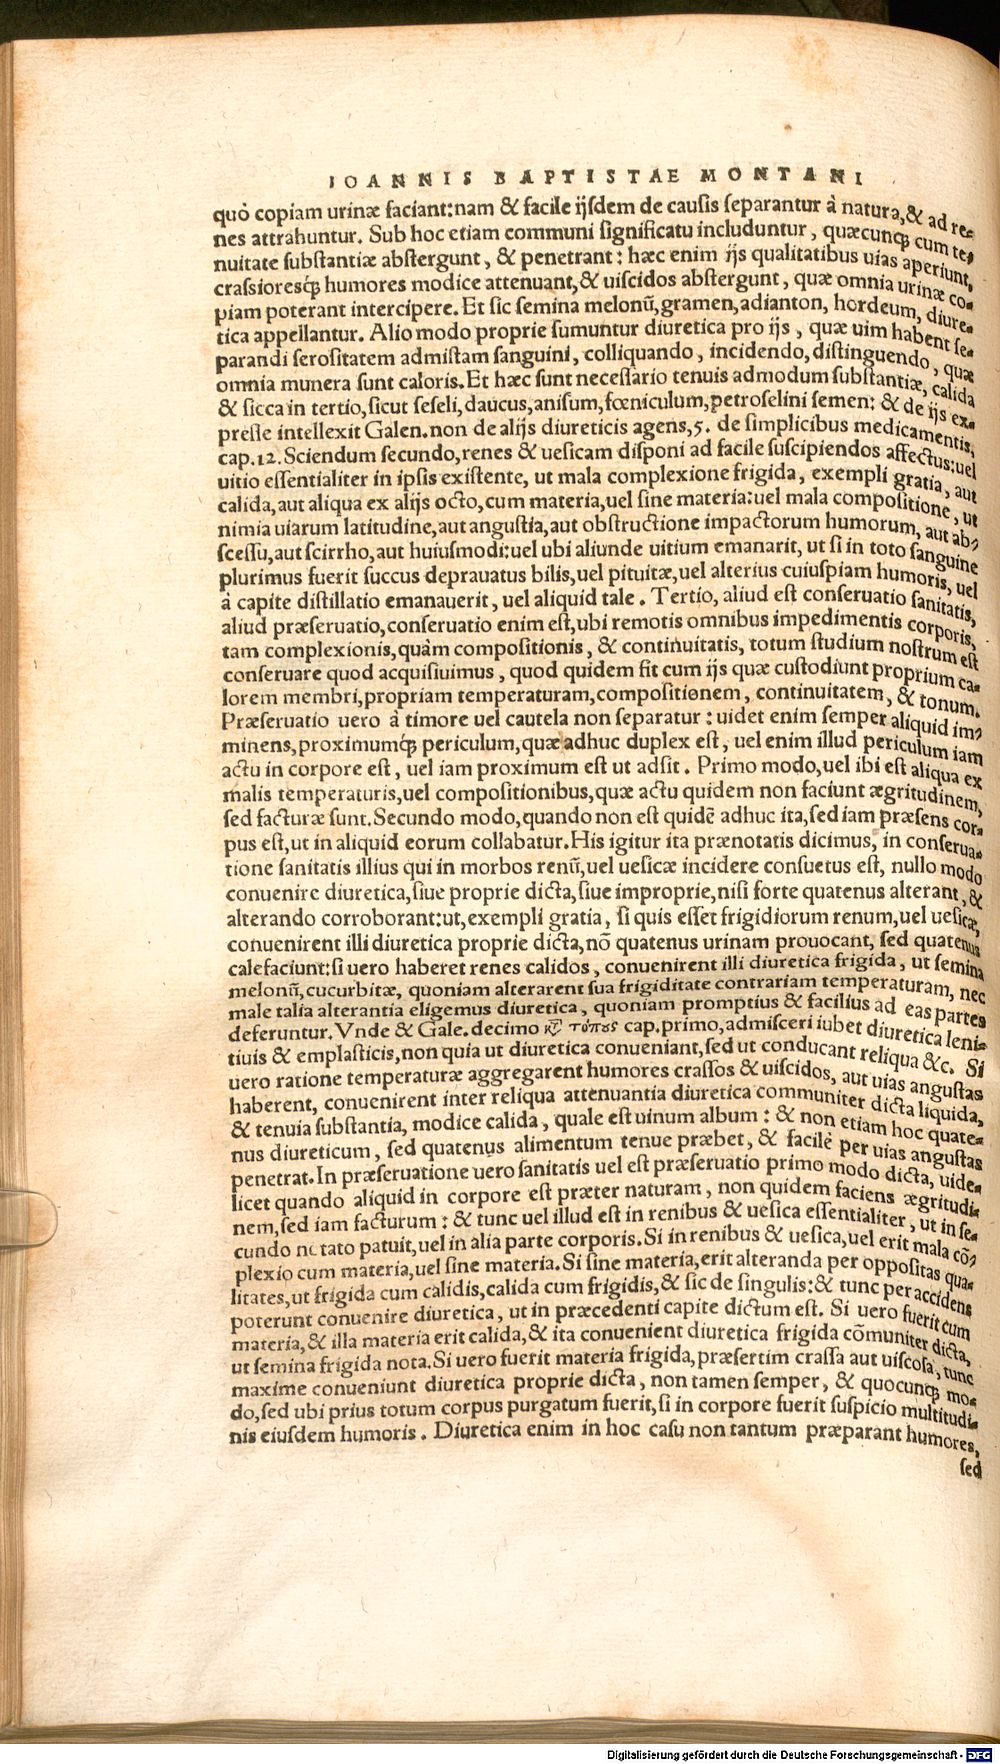 IOANNIS BAPTISTAE MONTANI
quò copiam urinæ faciant:nam & facile ijsdem de causis separantur à natura,& ad re-
nes attrahuntur. Sub hoc etiam communi significatu includuntur, quæcunq; cum te-
nuitate substantiæ abstergunt, & penetrant: hæc enim ijs qualitatibus uias aperiunt,
crassioresq́; humores modice attenuant,& uiscidos abstergunt, quæ omnia urinæ co-
piam poterant intercipere. Et sic semina melonũ,gramen,adianton, hordeum, diure-
tica appellantur. Alio modo proprie sumuntur diuretica pro ijs, quæ uim habent se-
parandi serositatem admistam sanguini, colliquando, incidendo, distinguendo, quæ
omnia munera sunt caloris.Et hæc sunt necessario tenuis admodum substantiæ, calida
& sicca in tertio,sicut seseli,daucus,anisum,fœniculum,petroselini semen: & de ijs ex-
presse intellexit Galen.non de alijs diureticis agens,5. de simplicibus medicamentis,
cap.12. Sciendum secundo,renes & uesicam disponi ad facile suscipiendos affectus:uel
uitio essentialiter in ipsis existente, ut mala complexione frigida, exempli gratia, aut
calida,aut aliqua ex alijs octo,cum materia,uel sine materia:uel mala compositione, ut
nimia uiarum latitudine,aut angustia,aut obstructione impactorum humorum, aut ab-
scessu,aut scirrho,aut huiusmodi:uel ubi aliunde uitium emanarit, ut si in toto sanguine
plurimus fuerit succus deprauatus bilis,uel pituitæ,uel alterius cuiuspiam humoris, uel
à capite distillatio emanauerit, uel aliquid tale. Tertio, aliud est conseruatio sanitatis,
aliud præseruatio,conseruatio enim est,ubi remotis omnibus impedimentis corporis,
tam complexionis,quàm compositionis, & continuitatis, totum studium nostrum est
conseruare quod acquisiuimus, quod quidem fit cum ijs quæ custodiunt proprium ca-
lorem membri,propriam temperaturam,compositionem, continuitatem, & tonum.
Præseruatio uero à timore uel cautela non separatur: uidet enim semper aliquid im-
minens,proximumq́; periculum,quæ adhuc duplex est, uel enim illud periculum iam
actu in corpore est, uel iam proximum est ut adsit. Primo modo,uel ibi est aliqua ex
malis temperaturis,uel compositionibus,quæ actu quidem non faciunt ægritudinem,
sed facturæ sunt.Secundo modo,quando non est quidẽ adhuc ita,sed iam præsens cor-
pus est,ut in aliquid eorum collabatur.His igitur ita prænotatis dicimus, in conserua-
tione sanitatis illius qui in morbos renũ,uel uesicæ incidere consuetus est, nullo modo
conuenire diuretica,siue proprie dicta,siue improprie,nisi forte quatenus alterant, &
alterando corroborant:ut,exempli gratia, si quis esset frigidiorum renum,uel uesicæ,
conuenirent illi diuretica proprie dicta,nõ quatenus urinam prouocant, sed quatenus
calefaciunt:si uero haberet renes calidos, conuenirent illi diuretica frigida, ut semina
melonũ,cucurbitæ, quoniam alterarent sua frigiditate contrariam temperaturam, nec
male talia alterantia eligemus diuretica, quoniam promptius & facilius ad eas partes
deferuntur. Vnde & Gale. decimo τόπους cap.primo,admisceri iubet diuretica leni-
tiuis & emplasticis,non quia ut diuretica conueniant,sed ut conducant reliqua &c. Si
uero ratione temperaturæ aggregarent humores crassos & uiscidos, aut uias angustas
haberent, conuenirent inter reliqua attenuantia diuretica communiter dicta liquida,
& tenuia substantia, modice calida, quale est uinum album: & non etiam hoc quate-
nus diureticum, sed quatenus alimentum tenue præbet, & facile per uias angustas
penetrat.In præseruatione uero sanitatis uel est præseruatio primo modo dicta, uide-
licet quando aliquid in corpore est præter naturam, non quidem faciens ægritudi-
nem,sed iam facturum: & tunc uel illud est in renibus & uesica essentialiter, ut in se-
cundo notato patuit,uel in alia parte corporis.Si in renibus & uesica,uel erit mala cõ-
plexio cum materia,uel sine materia.Si sine materia,erit alteranda per oppositas qua-
litates,ut frigida cum calidis,calida cum frigidis,& sic de singulis:& tunc per accidens
poterunt conuenire diuretica, ut in præcedenti capite dictum est. Si uero fuerit cum
materia,& illa materia erit calida,& ita conuenient diuretica frigida cõmuniter dicta,
ut semina frigida nota.Si uero fuerit materia frigida,præsertim crassa aut uiscosa, tunc
maxime conueniunt diuretica proprie dicta, non tamen semper, & quocunq; mo-
do,sed ubi prius totum corpus purgatum fuerit,si in corpore fuerit suspicio multitudi-
nis eiusdem humoris. Diuretica enim in hoc casu non tantum præparant humores,
sed
Digitalisierung gefördert durch die Deutsche Forschungsgemeinschaft - DFG